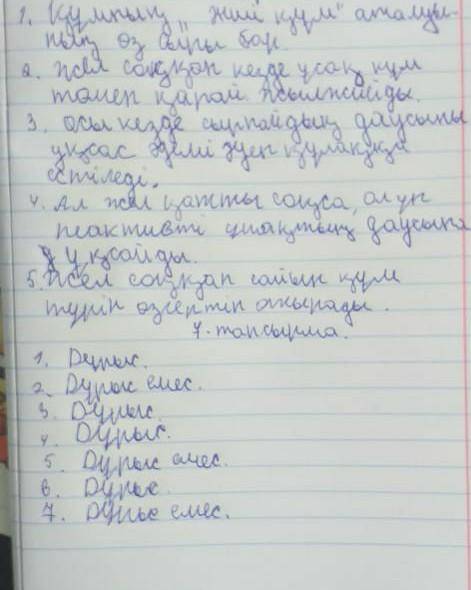 1. Құмның „ Әнші құм" аталуы-
ның өз сыры бар.
2. Жел соққан кезде ұсақ құм
төмен қарай жылжиды.
3. осы кезде сырнайдың даусына
ұқсас әдемі әуен құлаққа
естіледі.
4. Ал жел қатты соқса, ол үн
реактивті ұшақтың даусына
ұқсайды.
5. Жел соққан сайын құм
түрін өзгертіп отырады.
7-тапсырма.
1. Дұрыс.
2. Дұрыс емес.
3. Дұрыс.
4. Дұрыс.
5. Дұрыс емес.
6. Дұрыс.
7. Дұрыс емес.